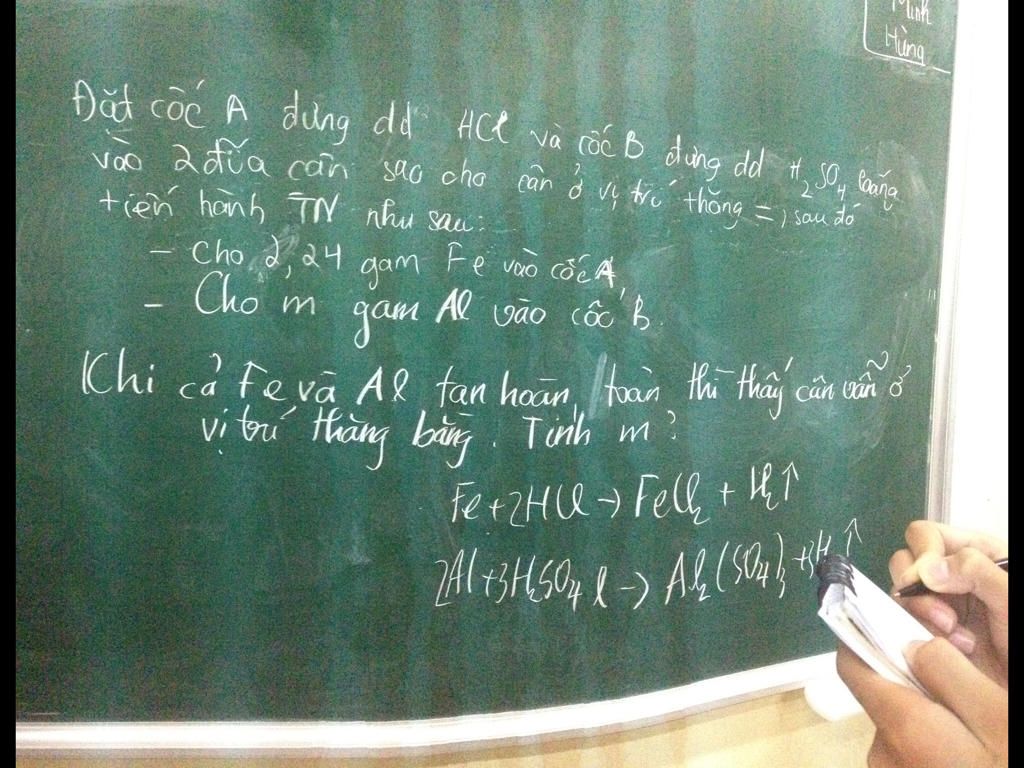 Minh
Hùng
Đặt cốc A đựng dd HCl và cốc B đựng dd H₂SO₄ loãng
vào 2 đĩa cân sao cho cân ở vị trí thăng =, sau đó
tiến hành TN như sau:
- Cho 2,24 gam Fe vào cốc A,
- Cho m gam Al vào cốc B.
Khi cả Fe và Al tan hoàn toàn thì thấy cân vẫn ở
vị trí thăng bằng. Tính m?
Fe + 2HCl → FeCl₂ + H₂↑
2Al + 3H₂SO₄ l → Al₂(SO₄)₃ + 3H₂↑